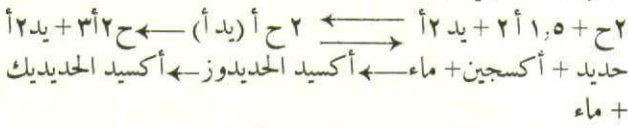 ٢ح + ١,٥ أ ٢ + يد ٢أ ⇄ ٢ ح أ (يد أ) ← ح ٢أ ٣ + يد ٢أ
حديد + أكسجين + ماء ← أكسيد الحديدوز ← أكسيد الحديديك
+ ماء